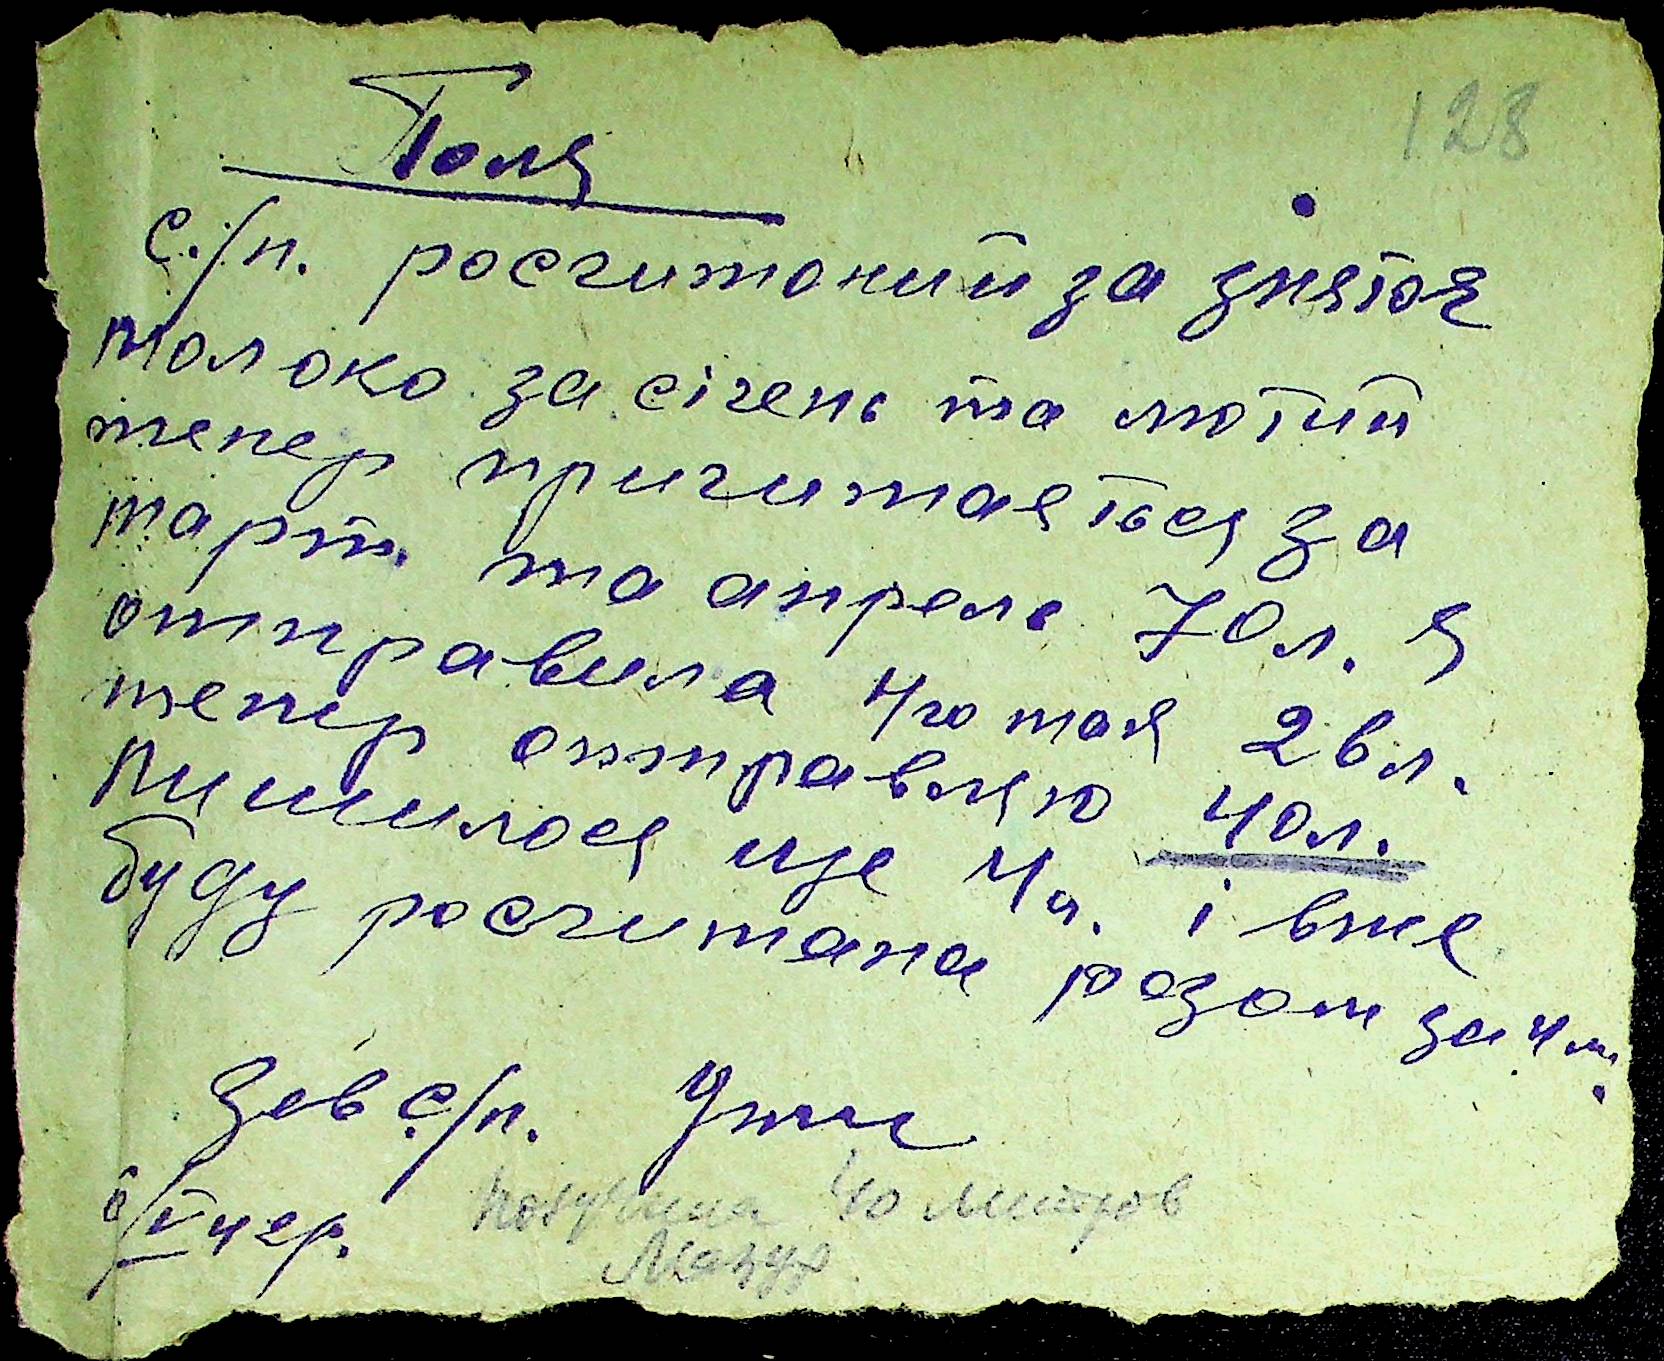 128
Поля
с./п. росчитоний за знятоя
молоко за січень та лютий
тепер причитаяться за
март. та апрель 70л. я
отправила 4го мая 26л.
тепер отправляю 40л.
лишилося ще 4л. і вже
буду росчитана разом за 4 м.
Зав с/п.
6/V чер.
получила 40 литров
Мазур